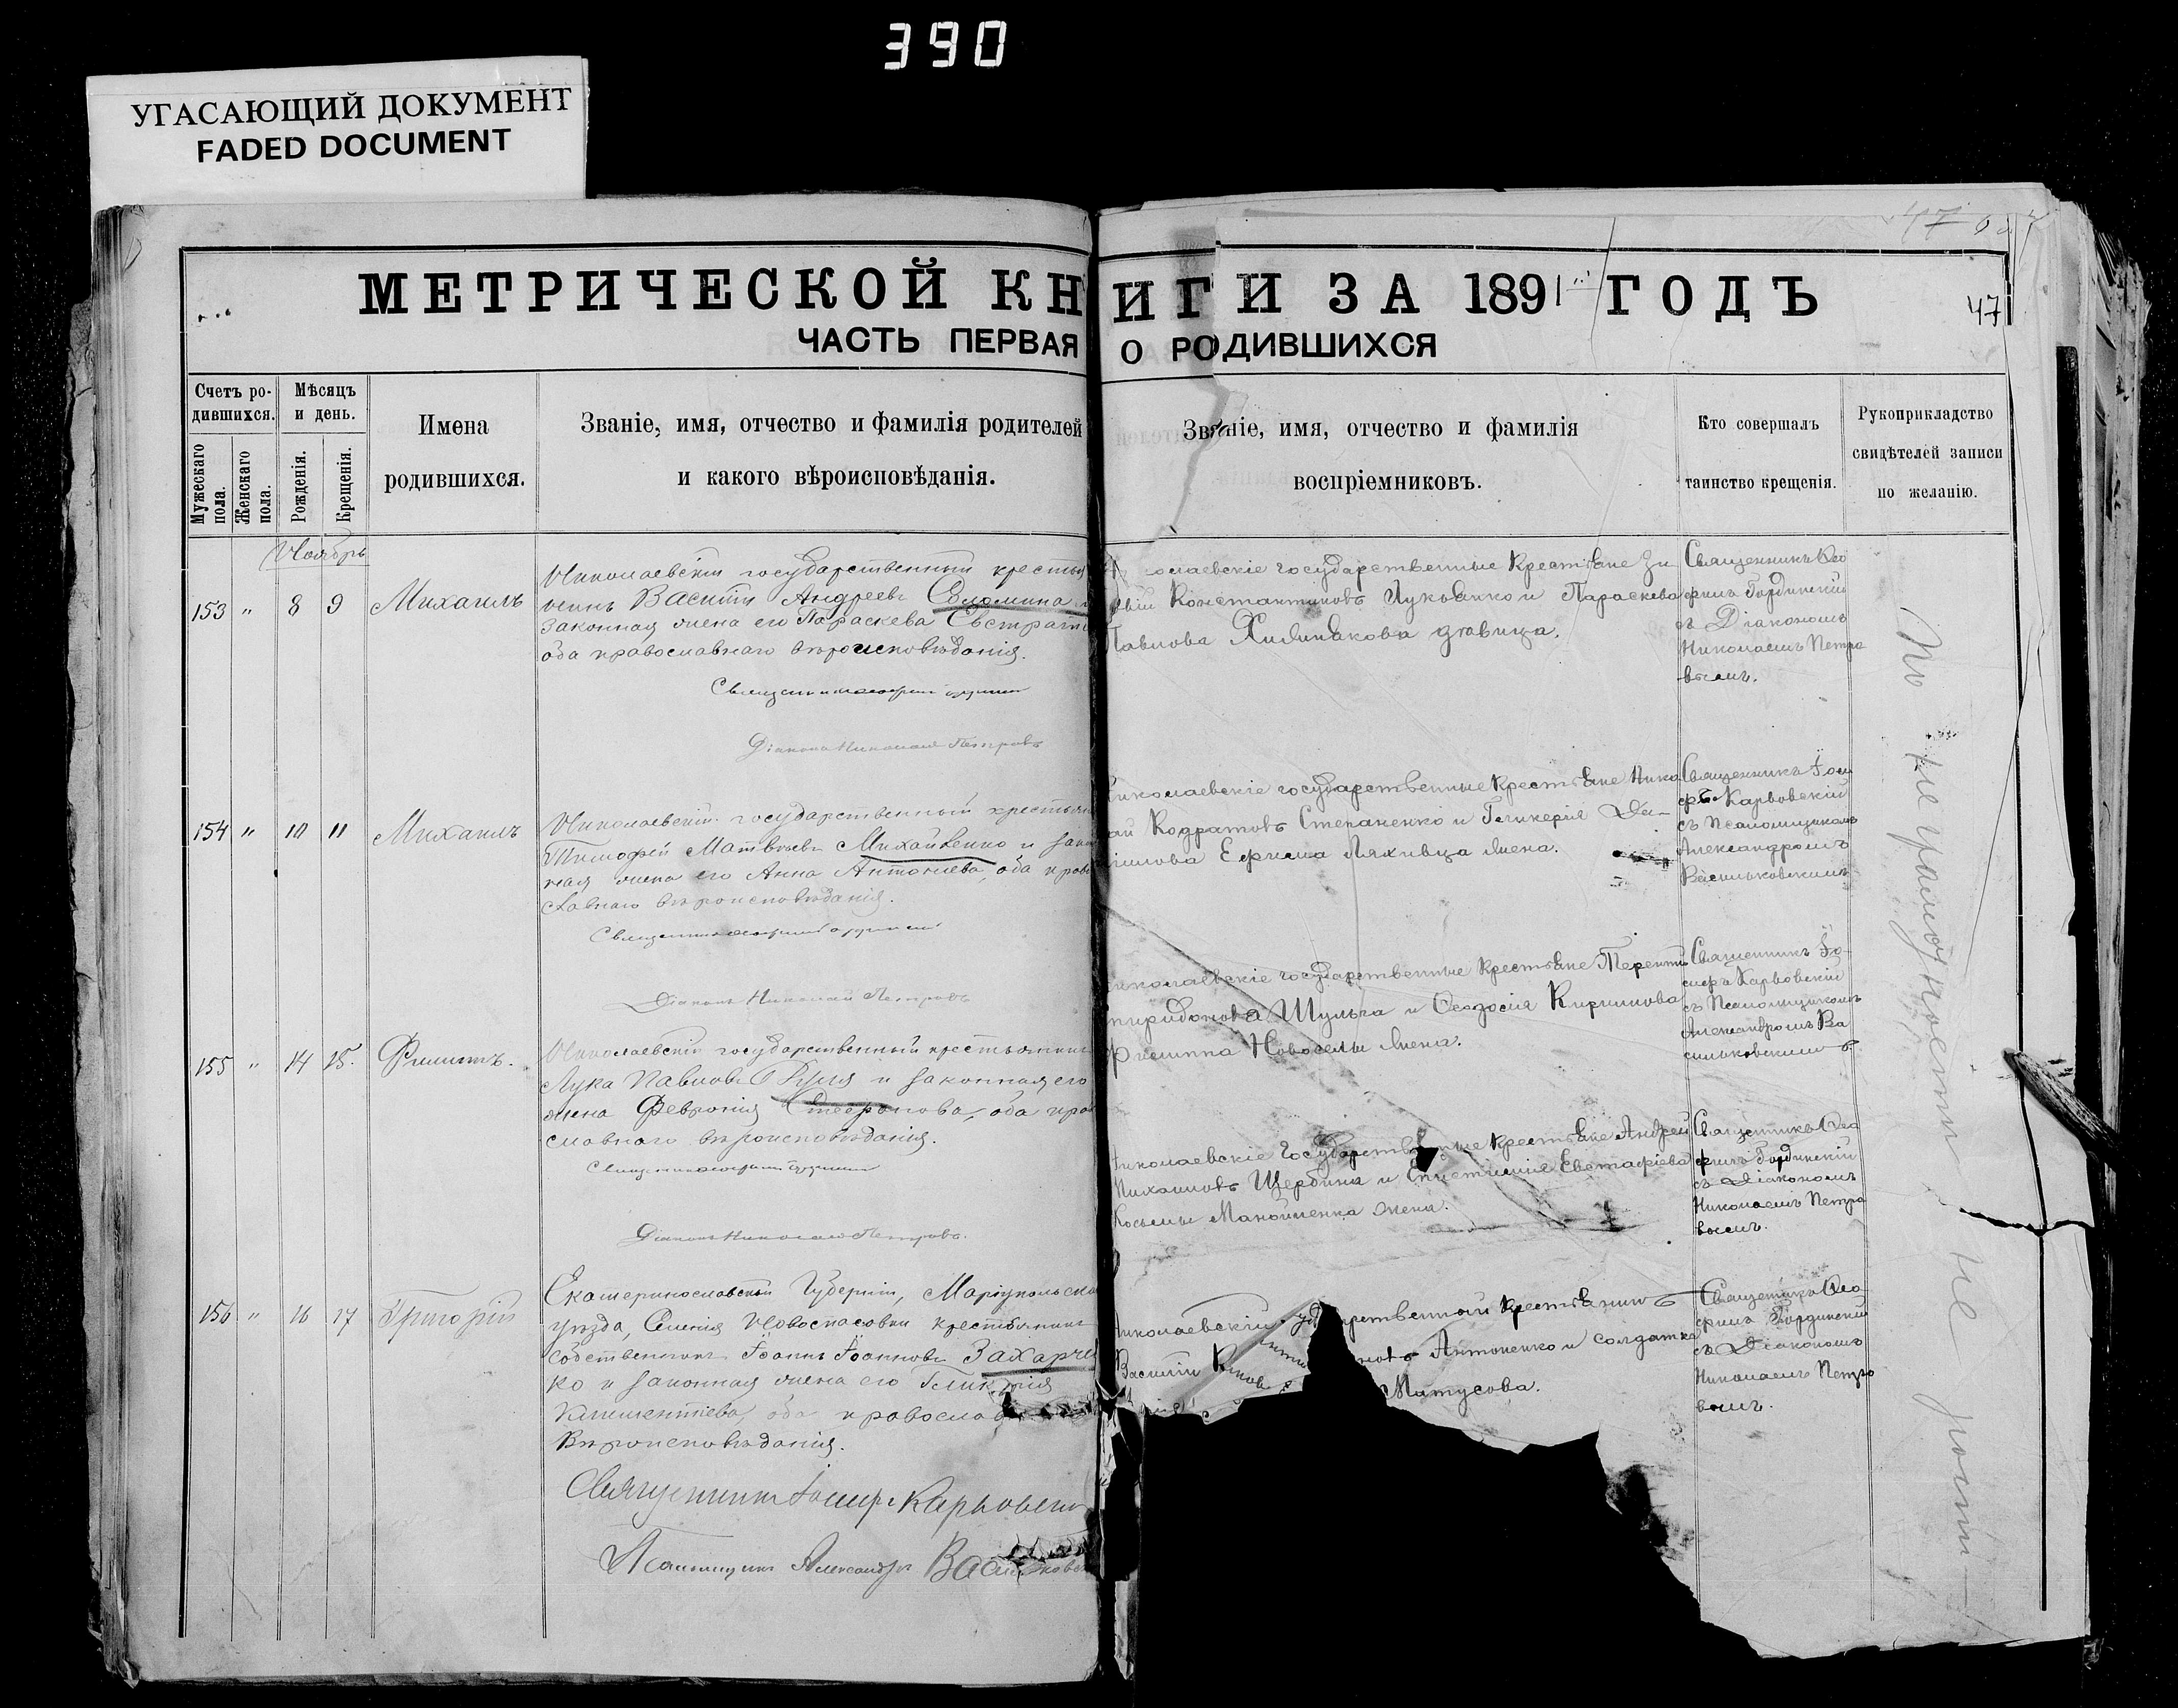 390
УГАСАЮЩИЙ ДОКУМЕНТ
FADED DOCUMENT
47
МЕТРИЧЕСКОЙ КНИГИ ЗА 1891 ГОДЪ
47
ЧАСТЬ ПЕРВАЯ О РОДИВШИХСЯ
Счетъ ро-
дившихся.
Мужескаго
пола.
Женскаго
пола.
Мѣсяцъ
и день.
Рожденія.
Крещенія.
Имена
родившихся.
Званіе, имя, отчество и фамилія родителей
и какого вѣроисповѣданія.
Званіе, имя, отчество и фамилія
воспріемниковъ.
Кто совершалъ
таинство крещенія.
Рукоприкладство
свидѣтелей записи
по желанію.
Ноябрь
153 " 8 9 Михаилъ
Николаевскій государственный крестья
нинъ Василій Андреевъ
законная жена его Параскева Евстрати
оба православнаго вѣроисповѣданія.
Діаконъ Николай Петровъ
олаевскіе государственные крестьяне
Константиновъ Луковенко и Параскева
Павлова девица.
Священникъ Ѳео
филъ Гординскій
съ Діакономъ
Николаемъ Петро
вымъ.
154 " 10 11 Михаилъ
Николаевскій государственный крестьян
Тимофей Матвѣевъ Михайленко и закон
ная жена его Анна Антоніева, оба право
славнаго вѣроисповѣданія.
Діаконъ Николай Петровъ
иколаевскіе государственные крестьяне Нико
лай Кодратовъ Степаненко и Гликерія Да-
нилова Ефима Ляхивца жена.
Священникъ Іоси
фъ Карвовскій
съ Псаломщикомъ
Александромъ
Васильковскимъ
155 " 14 15. Филиппъ.
Николаевскій государственный крестьянинъ
Лука Павловъ и законная его
жена Февронія Стефанова, оба прав
славнаго вѣроисповѣданія.
Діаконъ Николай Петровъ.
иколаевскіе государственные крестьяне Терентій
пиридонова Шульга и Ѳеодосія Кирилова
Филиппа Новоселы жена.
Священникъ Іо-
сифъ Карвовскій
съ Псаломщикомъ
Александромъ Ва
сильковскимъ.
иколаевскіе государственные крестьяне Андрей
Михаиловъ Щербина и Епистимія Евстафіева
Косьмы Манойленка жена.
Священникъ Ѳео
филъ Гординскій
съ Діакономъ
Николаемъ Петро
вымъ.
156 " 16 17 Григорій
Екатеринославской Губерніи, Маріупольска
уѣзда, Селенія Новоспасовки крестьянинъ
собственникъ Іоаннъ Іоанновъ Захарчен
ко и законная жена его Гликерія
Климентіева, оба православ
вѣроисповѣданія.
Священникъ Іосифъ Карвовскі
Псаломщикъ Александръ Васильковск
Николаевскій государственный крестьянинъ
Василій Антоненко и солдатка
Матусова.
Священникъ Ѳео
филъ Гординскій
съ Діакономъ
Николаемъ Петро
вымъ.
По неграмотности не